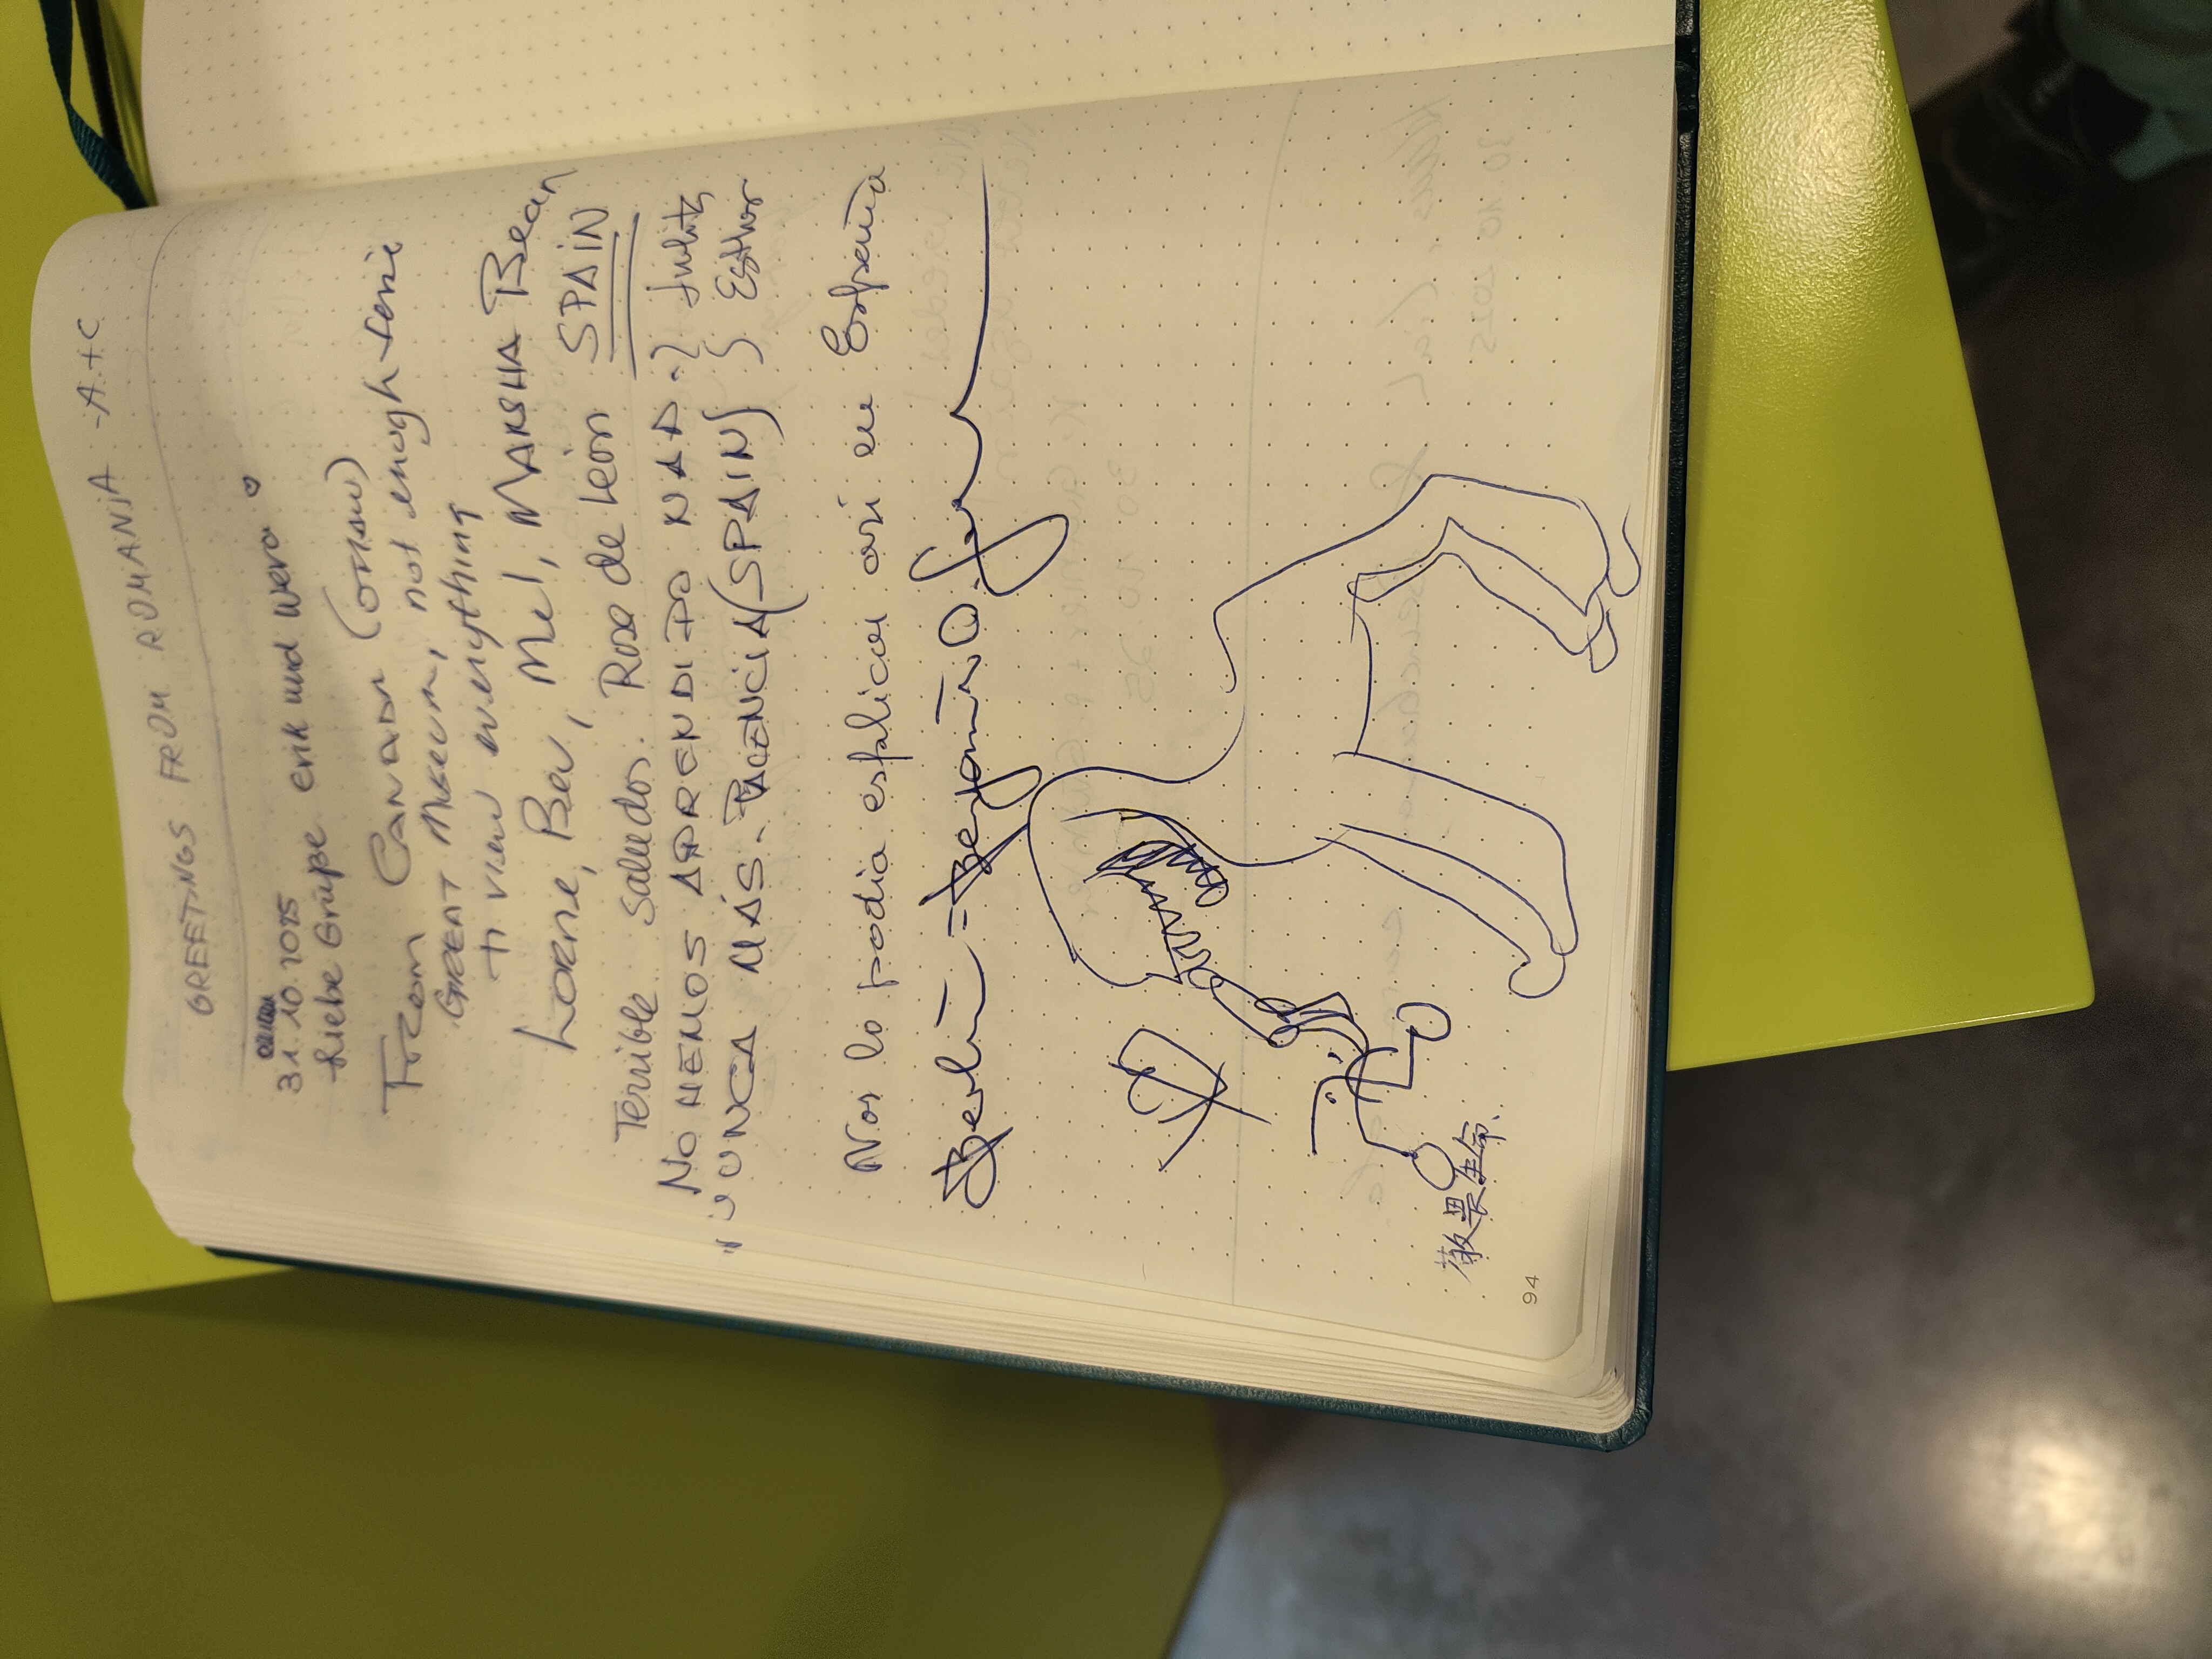 GREETINGS FROM ROMANIA -A+C
31.10.2025
Liebe Grüße erik und wera ♡
From Canada (OTTAWA)
GREAT MUSEUM, not enough time
to view everything
Lorne, Bev, Mel, MARSHA Bean
Terrible Saludos. Rosa de León SPAIN
NO HEMOS APRENDIDO NADA.
"NUNCA MÁS. PALENCIA (SPAIN) Esther
Nos lo podia esplicar asi en España
Berlin
敬畏生命.
94